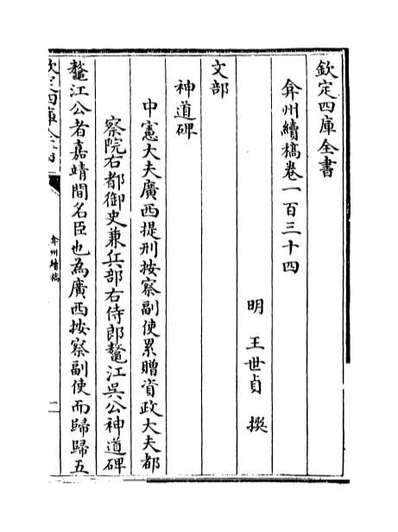 欽定四庫全書
弇州續稿卷一百三十四
明 王世貞 撰
文部
神道碑
中憲大夫廣西提刑按察副使累贈資政大夫都
察院右都御史兼兵部右侍郎鰲江吳公神道碑
鰲江公者嘉靖間名臣也為廣西按察副使而歸歸五
欽定四庫全書
弇州續稿
一